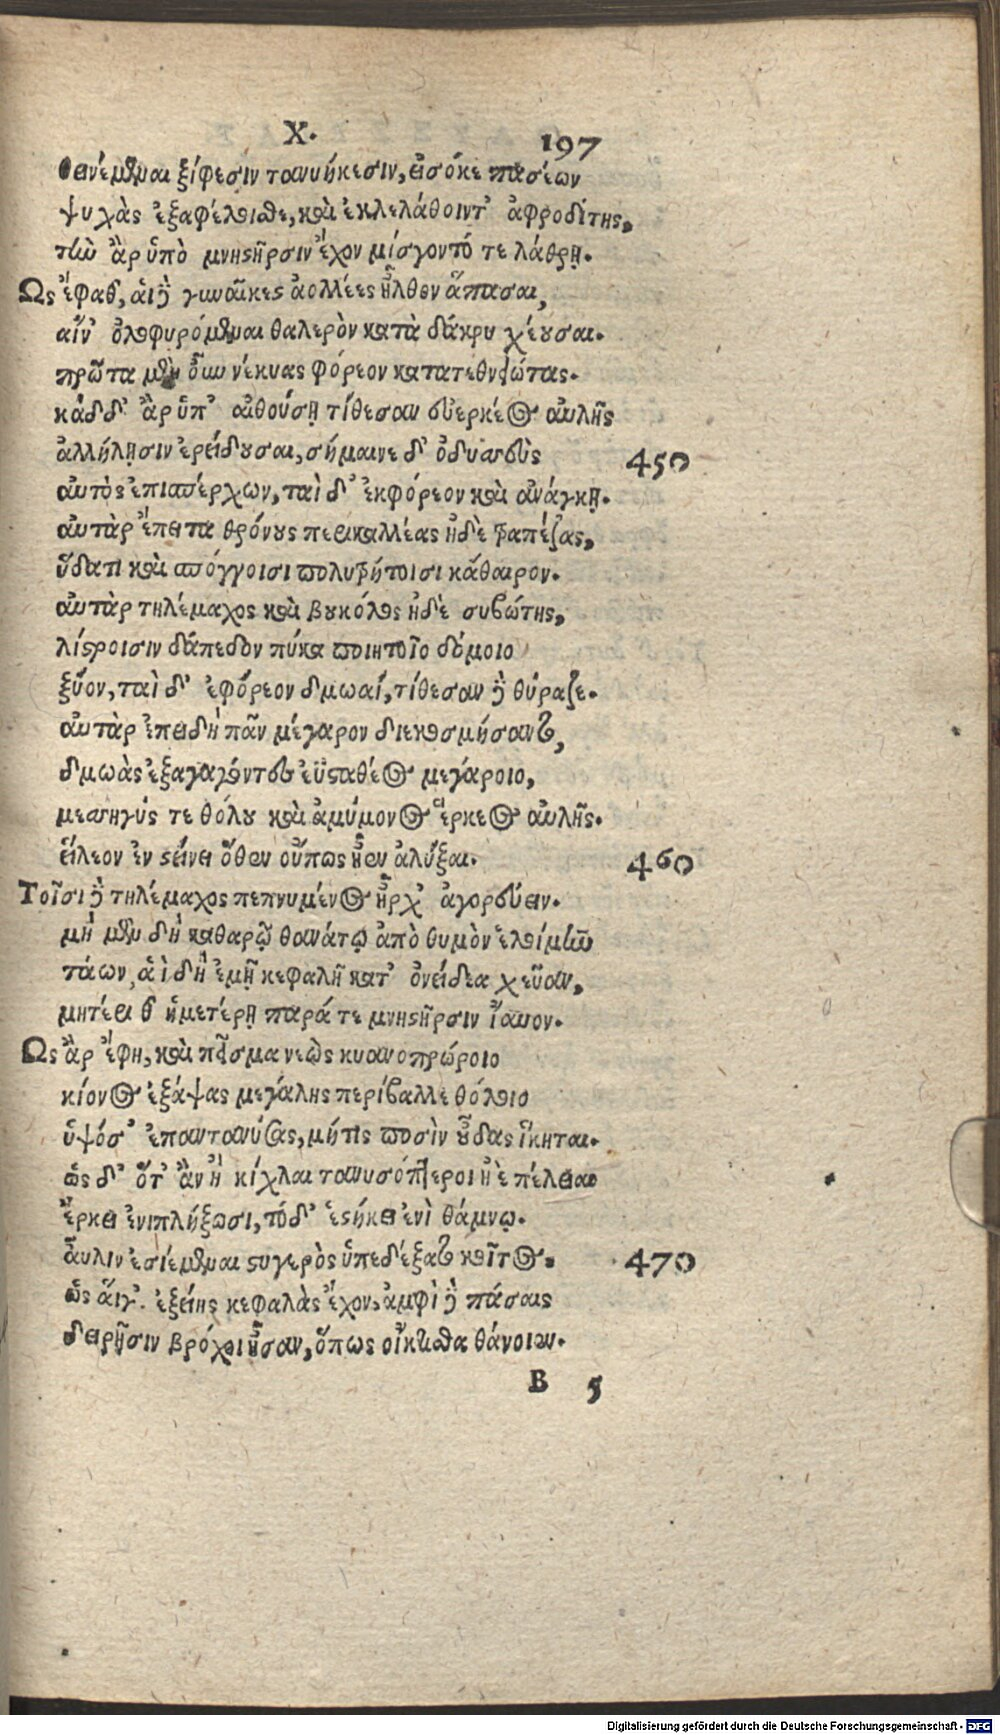 Χ. 197
θεινέμεναι ξίφεσιν τανυήκεσιν, εἰσόκε πασέων
ψυχὰς ἐξαφέλεισθε, καὶ ἐκλελάθοιντ' ἀφροδίτης,
τὴν ἂρ ὑπὸ μνηστῆρσιν ἔχον μίσγοντό τε λάθρῃ.
Ως ἔφαθ', ἁι δὲ γυναῖκες ἀολλέες ἦλθον ἅπασαι,
αἴν' ὀλοφυρόμεναι θαλερὸν κατὰ δάκρυ χέουσαι.
πρῶτα μὲν οὖν νέκυας φόρεον κατατεθνηώτας.
κάδδ' ἂρ ὑπ' αἰθούσῃ τίθεσαν εὐερκέος αὐλῆς
ἀλλήλῃσιν ἐρείδουσαι, σήμαινε δ' ὀδυσσεὺς 450
αὐτὸς ἐπισπέρχων, ταὶ δ' ἐκφόρεον καὶ ἀνάγκῃ.
αὐτὰρ ἔπειτα θρόνους περικαλλέας ἠδὲ τραπέζας,
ὕδατι καὶ σπόγγοισι πολυτρήτοισι κάθαιρον.
αὐτὰρ τηλέμαχος καὶ βουκόλος ἠδὲ συβώτης,
λίστροισιν δάπεδον πύκα ποιητοῖο δόμοιο
ξῦον, ταὶ δ' ἐφόρεον δμωαί, τίθεσαν δὲ θύραζε.
αὐτὰρ ἐπειδὴ πᾶν μέγαρον διεκοσμήσαντο,
δμωὰς ἐξαγαγόντες ἐϋσταθέος μεγάροιο,
μεσσηγύς τε θόλου καὶ ἀμύμονος ἕρκεος αὐλῆς.
εἵλεον ἐν στείνει ὅθεν οὔπως ἦεν ἀλύξαι. 460
Τοῖσι δὲ τηλέμαχος πεπνυμένος ἦρχ' ἀγορεύειν.
μὴ μὲν δὴ καθαρῷ θανάτῳ ἀπὸ θυμὸν ἑλοίμην
τάων, ἁὶ δὴ ἐμῇ κεφαλῇ κατ' ὀνείδεα χεῦαν,
μητέρι θ' ἡμετέρῃ παρά τε μνηστῆρσιν ἴαυον.
Ως ἂρ ἔφη, καὶ πεῖσμα νεὼς κυανοπρώροιο
κίονος ἐξάψας μεγάλης περίβαλλε θόλοιο
ὑψόσ' ἐπαντανύσας, μήτις ποσὶν οὖδας ἵκηται.
ὡς δ' ὅτ' ἂν ἢ κίχλαι τανυσόπτεροι ἠὲ πέλειαι
ἕρκει ἐνιπλήξωσι, τόδ' ἑστήκει ἐνὶ θάμνῳ.
ἄυλιν ἐσιέμεναι στυγερὸς ὑπεδέξατο κοῖτος, 470
ὡς ἅιγ'. ἑξείης κεφαλὰς ἔχον, ἀμφὶ δὲ πάσαις
δειρῇσιν βρόχοι ἦσαν, ὅπως οἴκτιστα θάνοιεν.
B 5
Digitalisierung gefördert durch die Deutsche Forschungsgemeinschaft - DFG